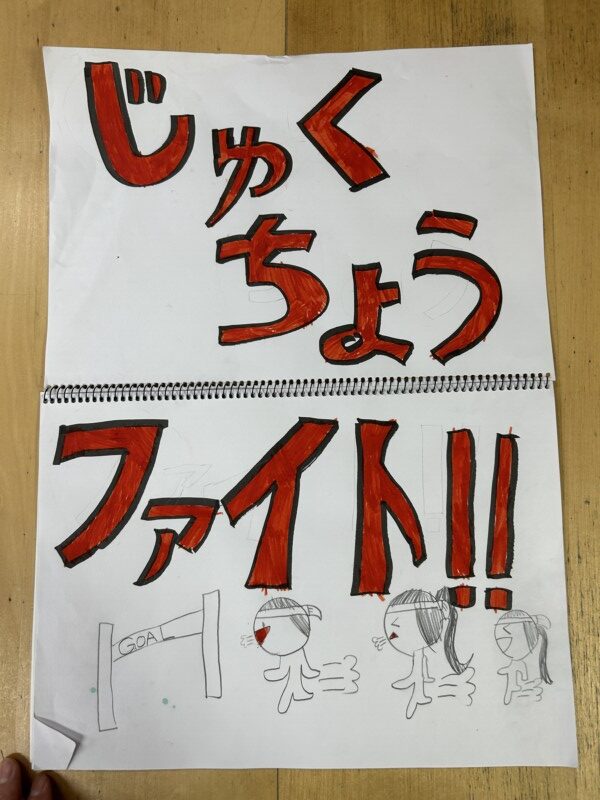 じゅく
ちょう
ファイト!!
GOAL